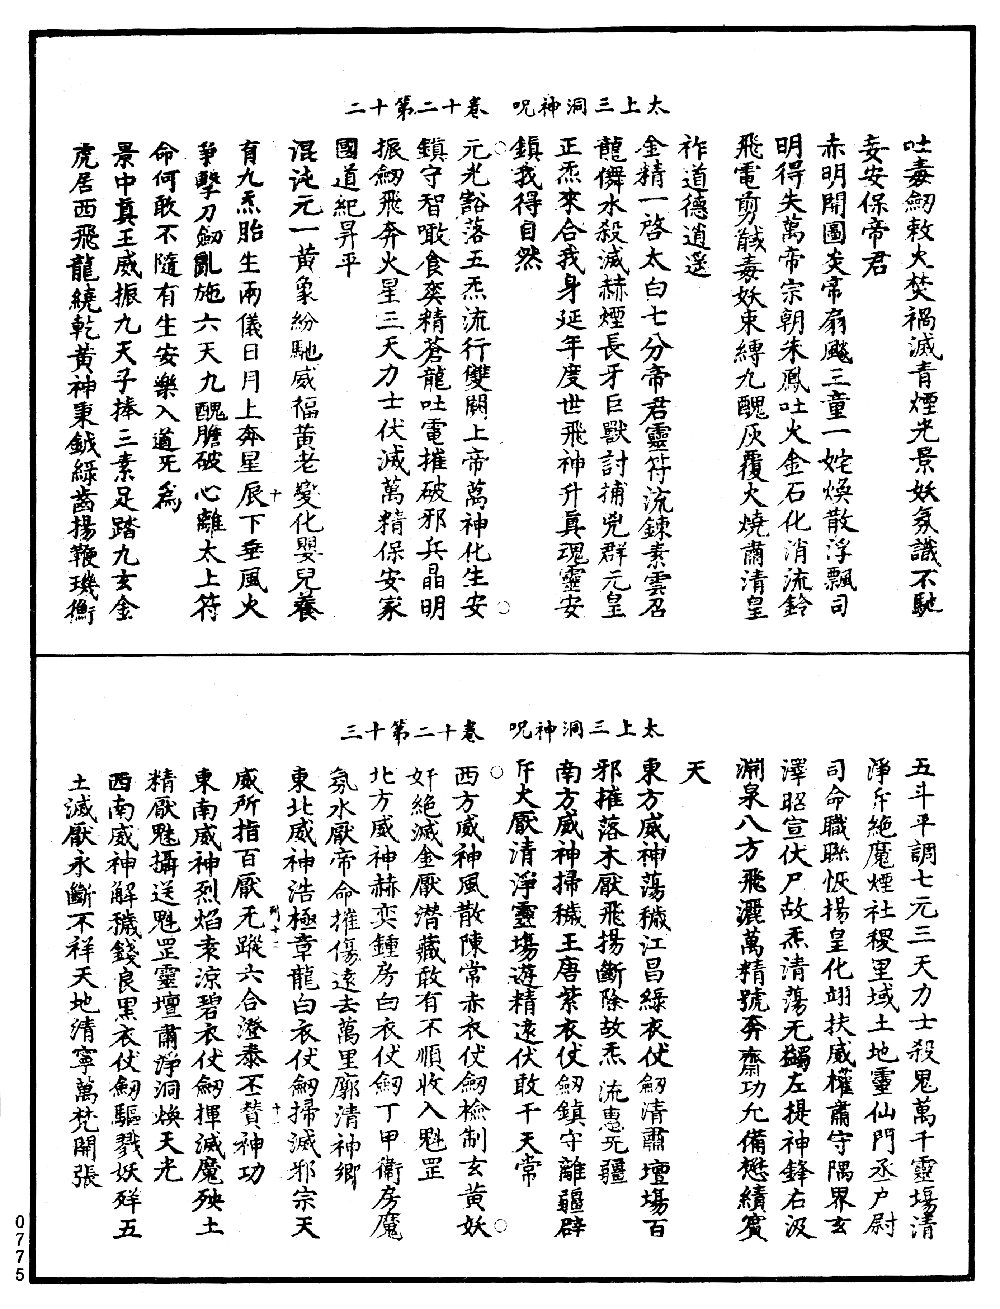 太上三洞神呪　卷十二第十二
吐毒劒敕火焚禍滅青煙光景妖氛識不馳
妄安保帝君
赤明開圖炎帝扇飈三童一姹煥散浮飄司
明得失萬帝宗朝朱鳳吐火金石化消流鈴
飛電剪馘毒妖束縛九醜灰覆火燒肅清皇
祚道德逍遥
金精一啓太白七分帝君靈符流鍊素雲召
龍儛水殺滅赫煙長牙巨獸討捕兇群元皇
正炁來合我身延年度世飛神升真魂靈安
鎮我得自然
元光豁落五炁流行雙闕上帝萬神化生安
鎮守智噉食奕精蒼龍吐電摧破邪兵晶明
振劒飛奔火星三天力士伏滅萬精保安家
國道紀昇平
混沌元一黄象紛馳威福黄老變化嬰兒養
育九炁胎生兩儀日月上奔星辰下垂風火
爭擊刀劒亂施六天九醜膽破心離太上符
命何敢不隨有生安樂入道无爲
景中真王威振九天子捧三素足踏九玄金
虎居西飛龍繞乾黄神秉鉞緑齒揚鞭璣衡
太上三洞神呪　卷十二第十三
五斗平調七元三天力士殺鬼萬千靈塲清
淨斥絶魔煙社稷里域土地靈仙門丞户尉
司命職聯恢揚皇化翊扶威權肅守隅界玄
澤昭宣伏尸故炁清蕩无蠲左提神鋒右汲
淵泉八方飛灑萬精號奔齋功允備懋績賓
天
東方威神蕩穢江昌緑衣仗劒清肅壇塲百
邪摧落木厭飛揚斷除故炁流惠无疆
南方威神掃穢王唐紫衣仗劒鎮守離疆辟
斥火厭清淨靈塲遊精遠伏敢干天常
西方威神風散陳常赤衣仗劒檢制玄黄妖
奸絶滅金厭潜藏敢有不順收入魁罡
北方威神赫奕鍾房白衣仗劒丁甲衛房魔
氛水厭帝命摧傷遠去萬里廓清神鄉
東北威神浩極章龍白衣仗劒掃滅邪宗天
威所指百厭无蹤六合澄泰丕賛神功
東南威神烈焰索凉碧衣仗劒揮滅魔殃土
精厭魅攝送魁罡靈壇肅淨洞煥天光
西南威神解穢錢良黑衣仗劒驅戮妖殃五
土滅厭永斷不祥天地清寧萬梵開張
0775